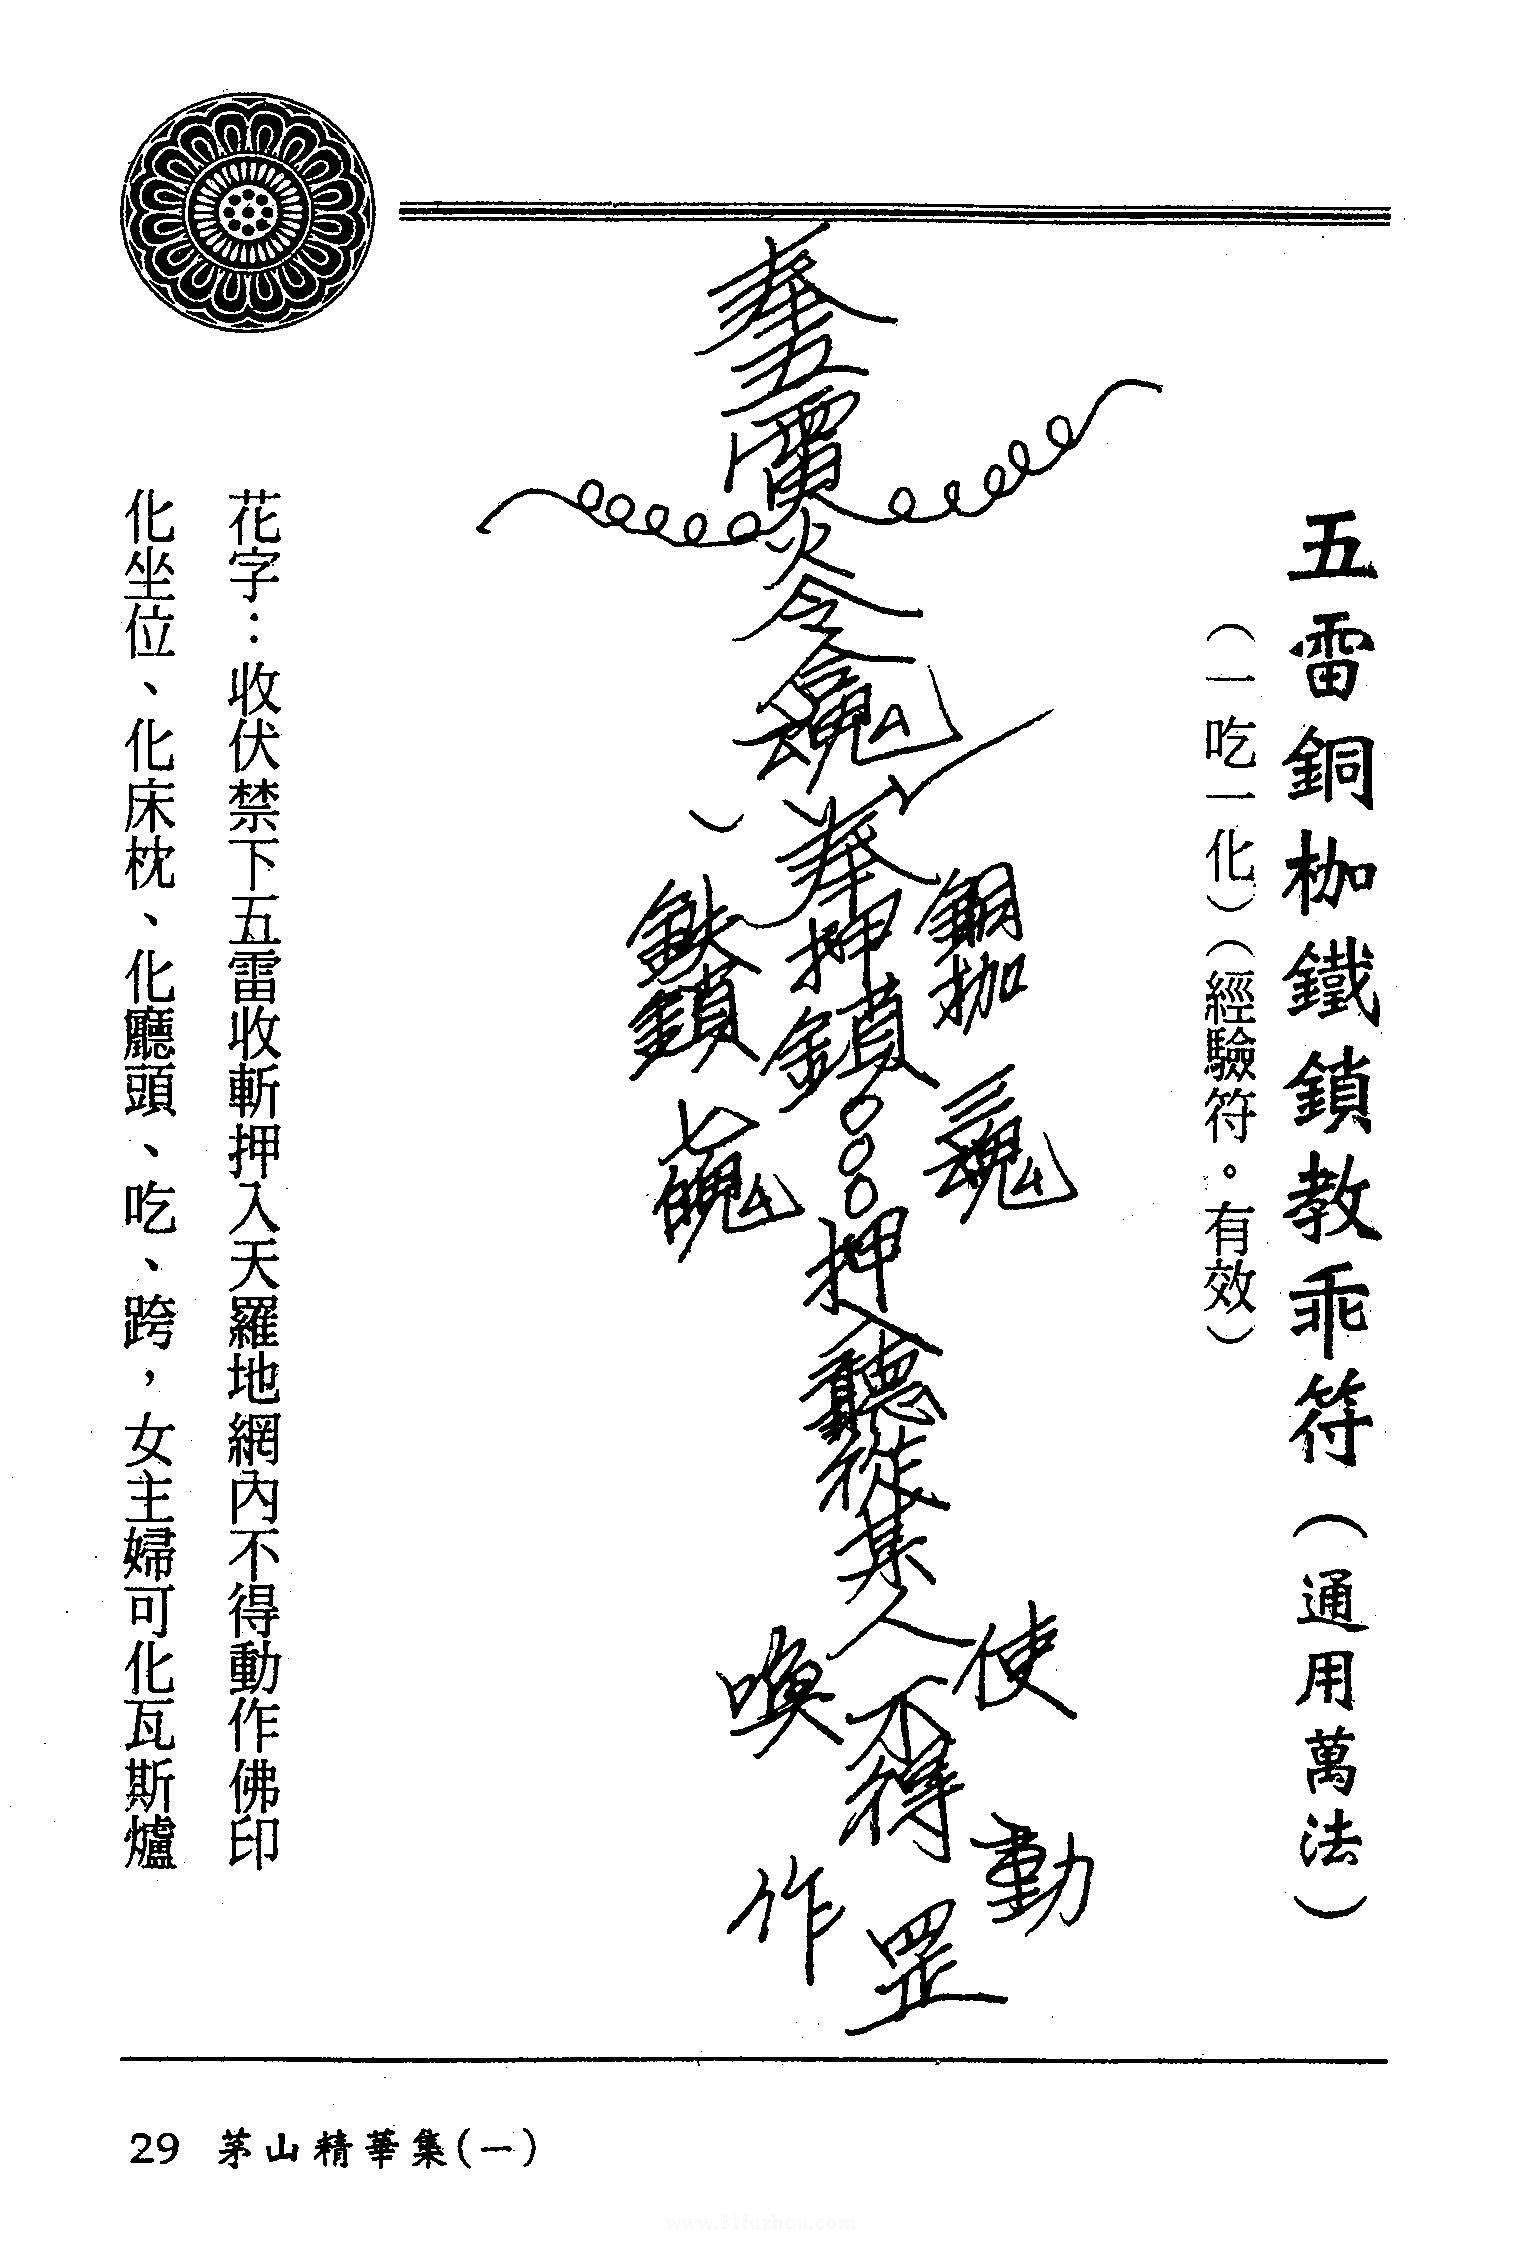 五雷銅枷鐵鎖教乖符（通用萬法）
（一吃一化）（經驗符。有效）
奉五雷火令
奉押鎖○○○押入聽從某人不得罡
銅枷
三魂
鉄鎖
七魄
使
喚
動
作
花字：收伏禁下五雷收斬押入天羅地網內不得動作佛印
化坐位、化床枕、化廳頭、吃、跨，女主婦可化瓦斯爐
29 茅山精華集(一)
www.81fuzhou.com